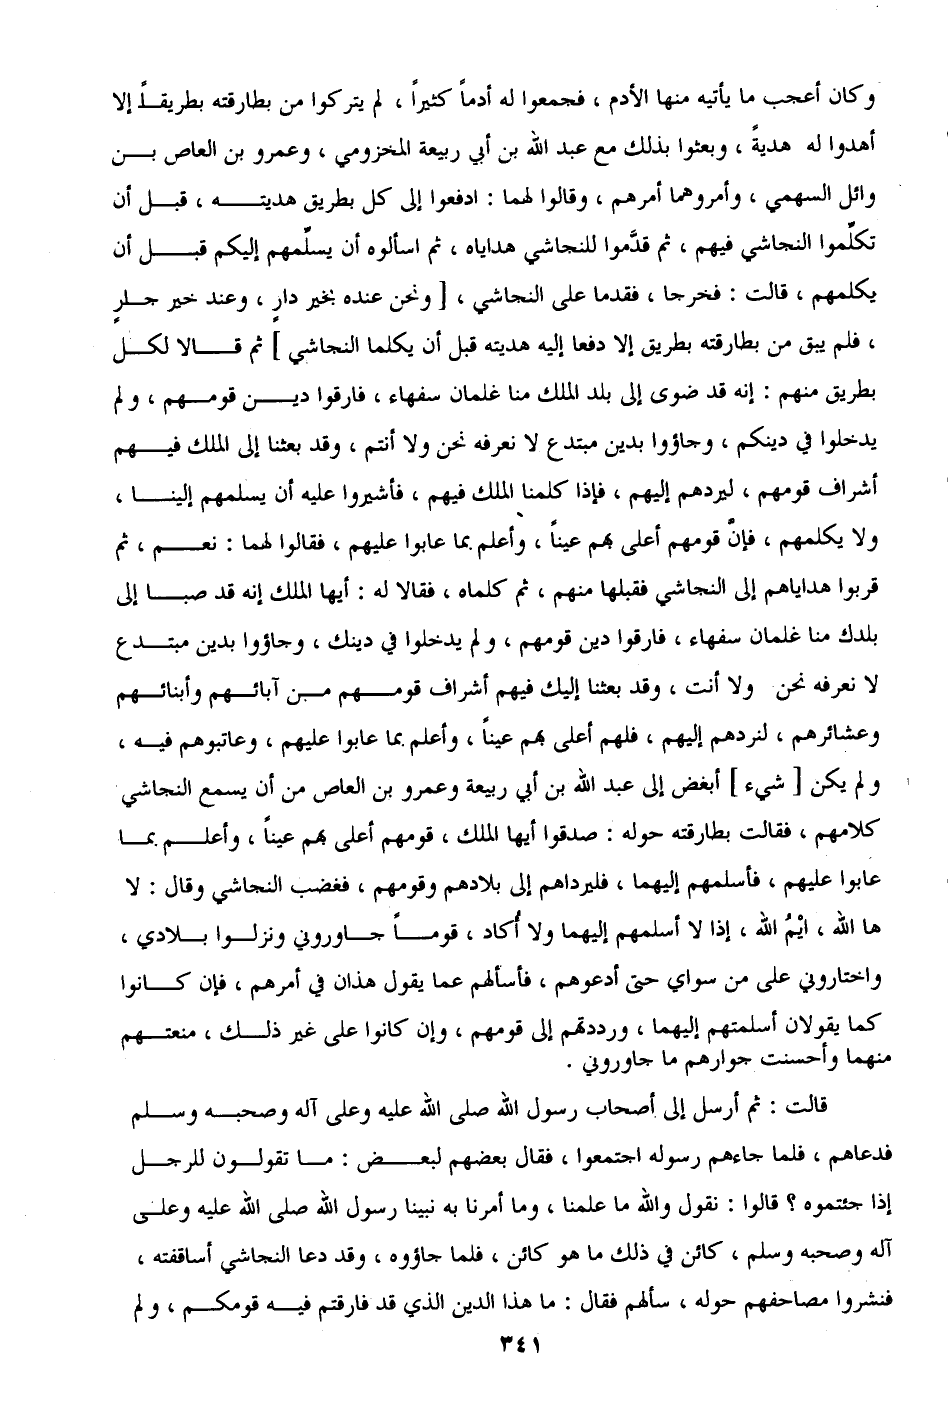 وكان أعجب ما يأتيه منها الأدم ، فجمعوا له أدماً كثيراً ، لم يتركوا من بطارقته بطريقاً إلا
أهدوا له هديةً ، وبعثوا بذلك مع عبد الله بن أبي ربيعة المخزومي ، وعمرو بن العاص بن
وائل السهمي ، وأمروهما أمرهم ، وقالوا لهما : ادفعوا إلى كل بطريق هديته ، قبل أن
تكلّموا النجاشي فيهم ، ثم قدَّموا للنجاشي هداياه ، ثم اسألوه أن يسلّمهم إليكم قبل أن
يكلمهم ، قالت : فخرجا ، فقدما على النجاشي ، [ ونحن عنده بخير دارٍ ، وعند خير جارٍ
، فلم يبق من بطارقته بطريق إلا دفعا إليه هديته قبل أن يكلما النجاشي ] ثم قالا لكل
بطريق منهم : إنه قد ضوى إلى بلد الملك منا غلمان سفهاء ، فارقوا دين قومهم ، ولم
يدخلوا في دينكم ، وجاؤوا بدين مبتدع لا نعرفه نحن ولا أنتم ، وقد بعثنا إلى الملك فيهم
أشراف قومهم ، ليردهم إليهم ، فإذا كلمنا الملك فيهم ، فأشيروا عليه أن يسلمهم إلينا ،
ولا يكلمهم ، فإنَّ قومهم أعلى بهم عيناً ، وأعلم بما عابوا عليهم ، فقالوا لهما : نعم ، ثم
قربوا هداياهم إلى النجاشي فقبلها منهم ، ثم كلماه ، فقالا له : أيها الملك إنه قد صبا إلى
بلدك منا غلمان سفهاء ، فارقوا دين قومهم ، ولم يدخلوا في دينك ، وجاؤوا بدين مبتدع
لا نعرفه نحن ولا أنت ، وقد بعثنا إليك فيهم أشراف قومهم من آبائهم وأبنائهم
وعشائرهم ، لنردهم إليهم ، فلهم أعلى بهم عيناً ، وأعلم بما عابوا عليهم ، وعاتبوهم فيه ،
ولم يكن [ شيء ] أبغض إلى عبد الله بن أبي ربيعة وعمرو بن العاص من أن يسمع النجاشي
كلامهم ، فقالت بطارقته حوله : صدقوا أيها الملك ، قومهم أعلى بهم عيناً ، وأعلم بما
عابوا عليهم ، فأسلمهم إليهما ، فليرداهم إلى بلادهم وقومهم ، فغضب النجاشي وقال : لا
ها الله ، ايْمُ الله ، إذا لا أسلمهم إليهما ولا أُكاد ، قوماً جاوروني ونزلوا بلادي ،
واختاروني على من سواي حتى أدعوهم ، فأسألهم عما يقول هذان في أمرهم ، فإن كانوا
كما يقولان أسلمتهم إليهما ، ورددتهم إلى قومهم ، وإن كانوا على غير ذلك ، منعتهم
منهما وأحسنت جوارهم ما جاوروني .
قالت : ثم أرسل إلى أصحاب رسول الله صلى الله عليه وعلى آله وصحبه وسلم
فدعاهم ، فلما جاءهم رسوله اجتمعوا ، فقال بعضهم لبعض : ما تقولون للرجل
إذا جئتموه ؟ قالوا : نقول والله ما علمنا ، وما أمرنا به نبينا رسول الله صلى الله عليه وعلى
آله وصحبه وسلم ، كائن في ذلك ما هو كائن ، فلما جاؤوه ، وقد دعا النجاشي أساقفته ،
فنشروا مصاحفهم حوله ، سألهم فقال : ما هذا الدين الذي قد فارقتم فيه قومكم ، ولم
٣٤١